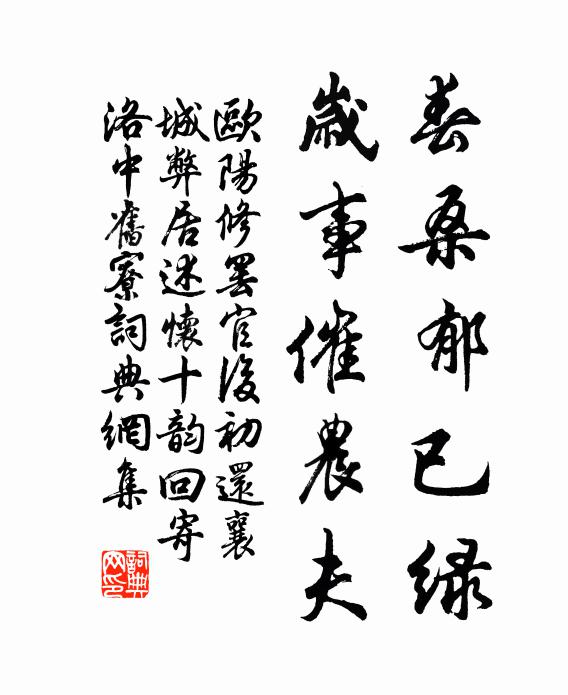 春桑郁已绿
歲事催農夫
歐陽修罢官後初還襄
城弊居述懷十韵回寄
洛中舊寮詞典網集
詞典
网印